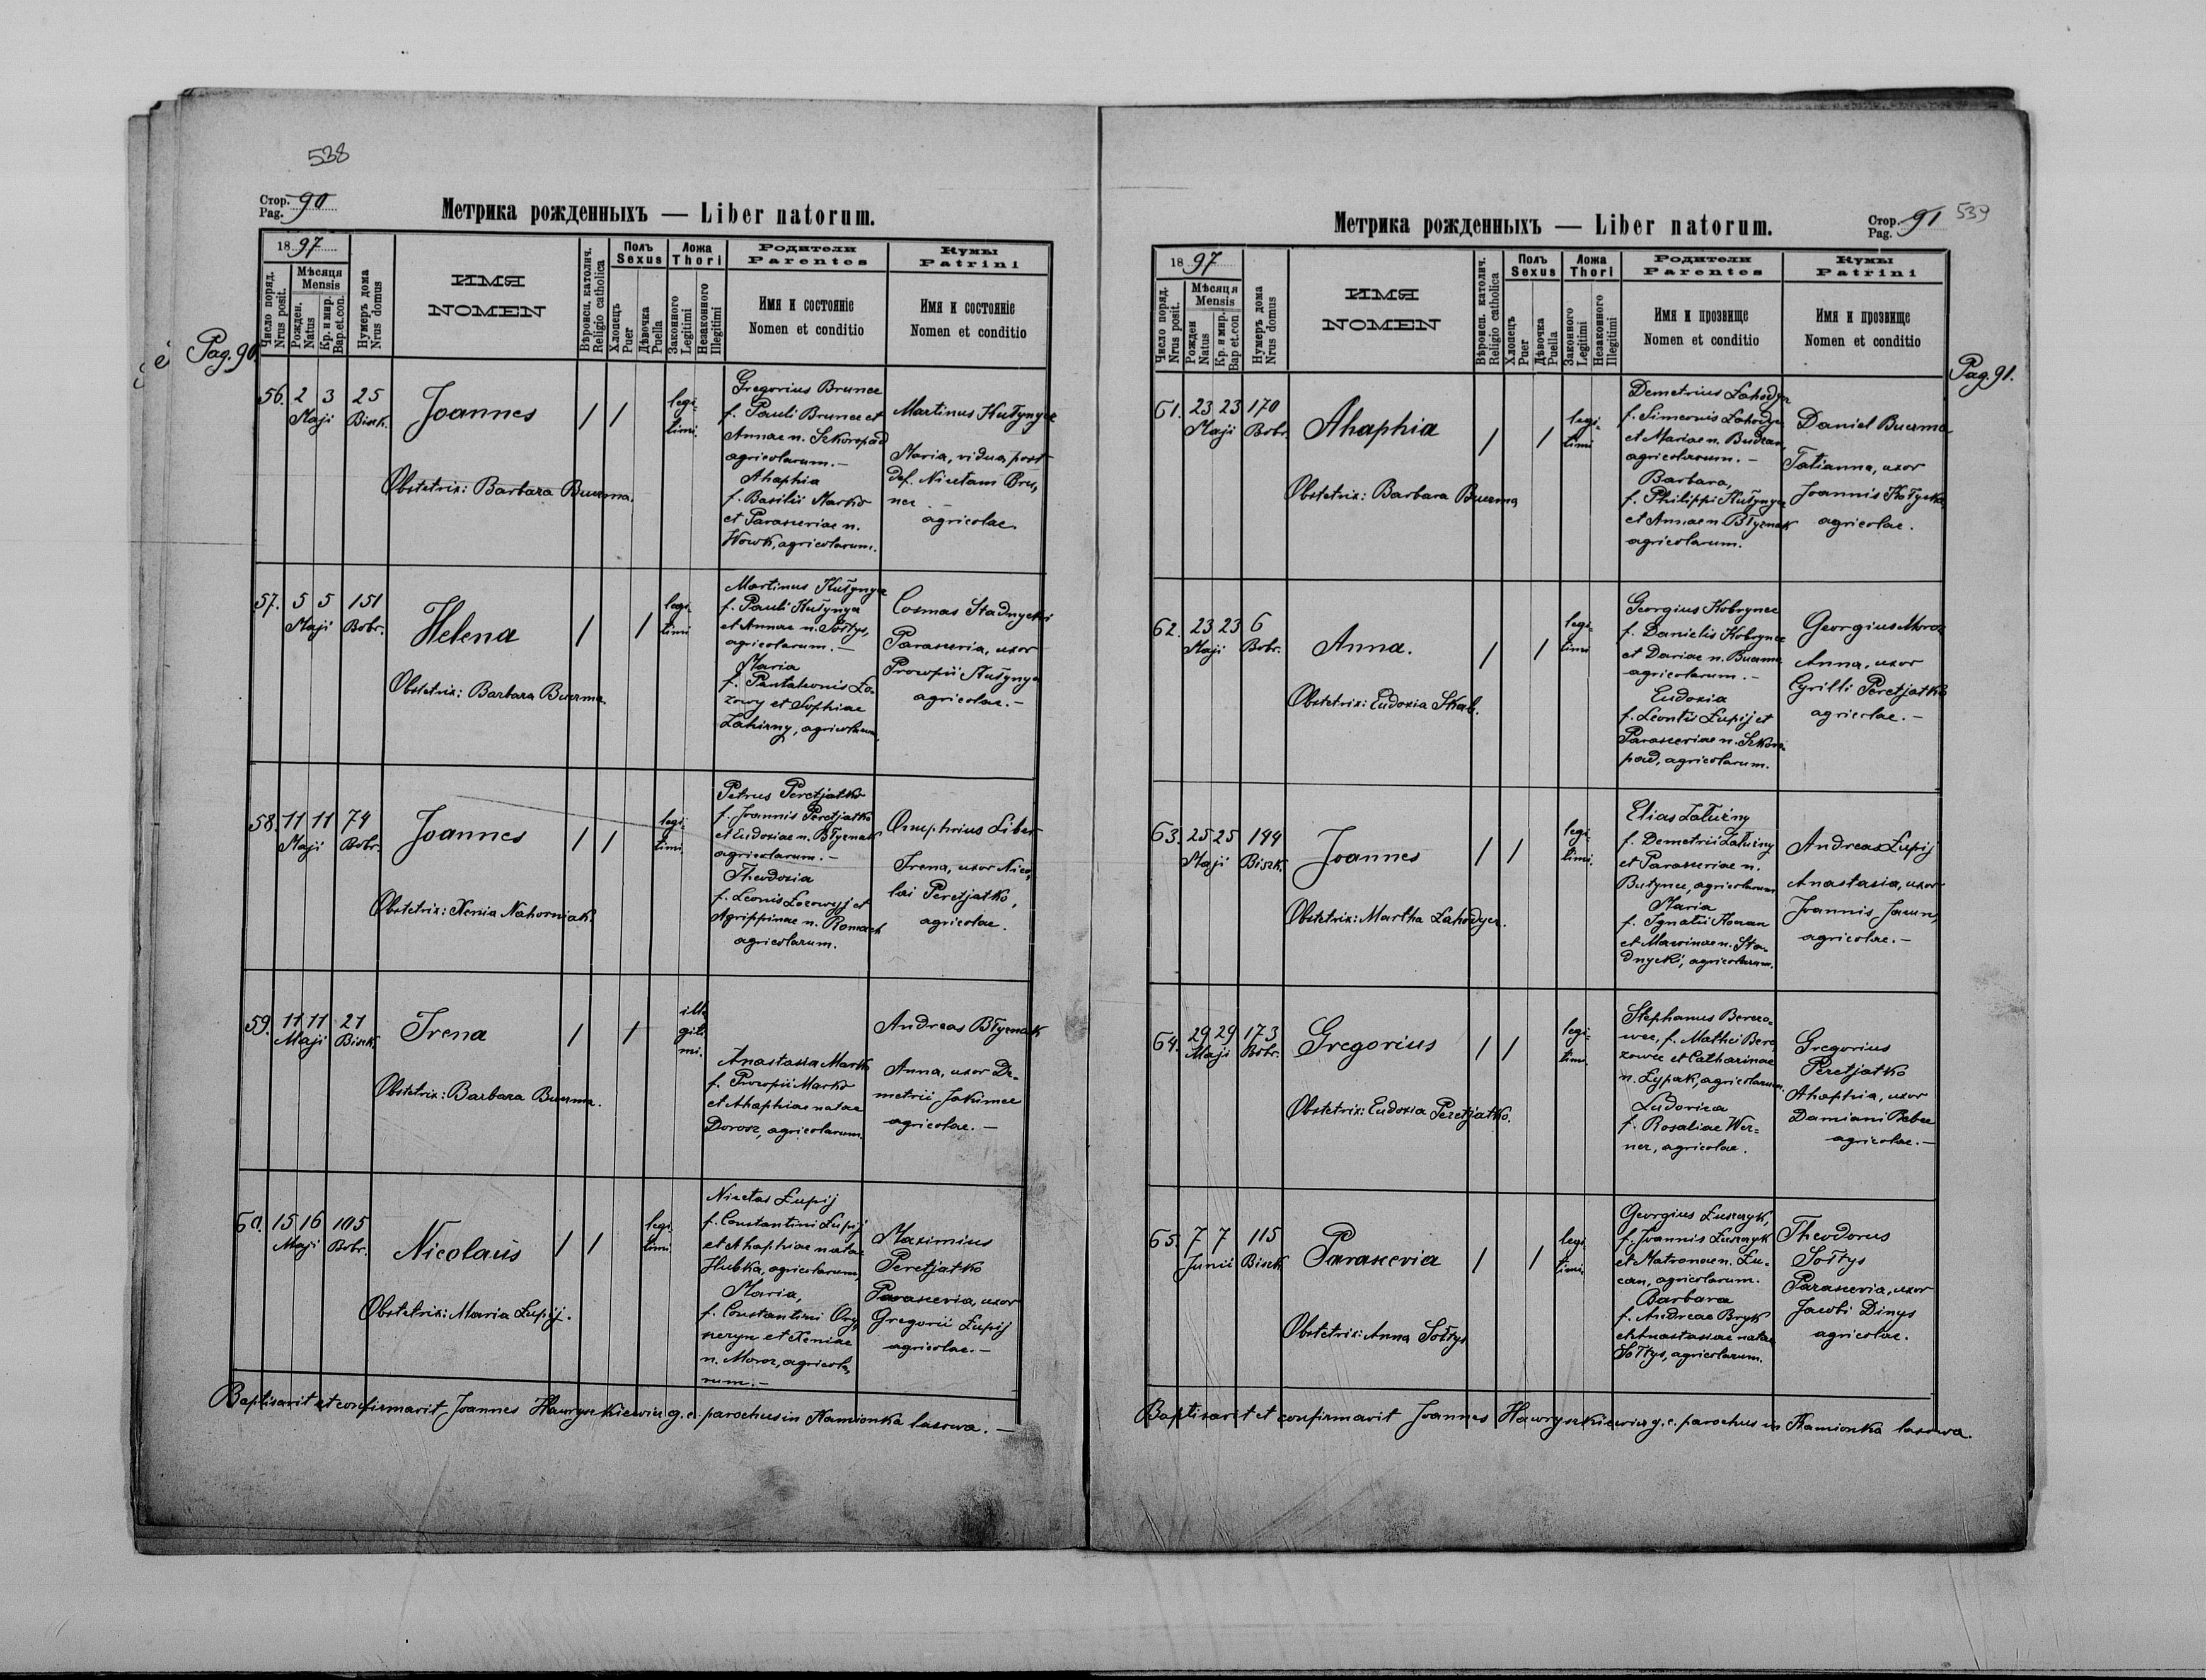 538
Стор. 90
Pag.
Метрика рожденныхъ — Liber natorum.
1897
Число поряд.
Nrus posit.
Мѣсяця
Mensis
Рожден.
Natus
Кр. и мир.
Bap.et.con.
Нумеръ дома
Nrus domus
ИМЯ
NOMEN
Вѣроисп. католич.
Religio catholica
Полъ
Sexus
Хлопецъ
Puer
Дѣвочка
Puella
Ложа
Thori
Законного
Legitimi
Незаконного
Illegitimi
Родители
Parentes
Имя и состоянiе
Nomen et conditio
Кумы
Patrini
Имя и состоянiе
Nomen et conditio
Pag. 90.
56. 2 3 25
Maji Bisck.
Joannes
/ /
legi-
timi.
Obstetrix: Barbara Buczma.
Gregorius Brunec
f. Pauli Brunec et
Annae n. Szkoropad
agricolarum.—
Ahaphia
f. Basilii Marko
et Parasceviae n.
Wowk, agricolarum.
Martinus Kułynycz
Maria, vidua post
def. Nicetam Bru,
nec.—
agricolae.
57. 5 5 151
Maji Bobr.
Helena
/ /
legi-
timi
Obstetrix: Barbara Buczma.
Martinus Kułynycz
f. Pauli Kułynycz
et Annae n. Sołtys,
agricolarum.—
Maria
f. Pantaleonis Ło-
zowy et Sophiae
Załuzny, agricolarum.
Cosmas Stadnycki
Parascevia, uxor
Procopii Kułynycz
agricolae.—
58. 11 11 74
Maji Bobr.
Joannes
/ /
legi-
timi.
Obstetrix: Xenia Nahorniak.
Petrus Peretjatko
f. Joannis Peretjatko
et Eudoxiae n. Błyznak
agricolarum.—
Theodozia
f. Leonis Łozowyj et
Agrippinae n. Romach
agricolarum.
Onuphrius Liber
Irena, uxor Nico,
lai Peretjatko,
agricolae.
59. 11 11 21
Maji Bisck.
Irena
/ /
ille-
giti-
mi.
Obstetrix: Barbara Buczma.
Anastasia Marko
f. Procopii Marko
et Ahaphiae natae
Dorosz, agricolarum.
Andreas Błyznak
Anna, uxor De-
metrii Jakimec
agricolae.—
60. 15 16 105
Maji Bobr.
Nicolaus
/ /
legi-
timi
Obstetrix: Maria Łupij.
Nicetas Łupij
f. Constantini Łupij
et Ahaphiae natae
Hubka, agricolarum,
Maria,
f. Constantini Ory,
szczyn et Xeniae
n. Moroz, agricola,
rum.—
Maximius
Peretjatko
Parascevia, uxor
Gregorii Łupij
agricolae.—
Baptisavit et confirmavit Joannes Hawryszkiewicz g. c. parochus in Kamionka lasowa.—
539
Метрика рожденныхъ — Liber natorum.
Стор. 91
Pag.
1897
Число поряд.
Nrus posit.
Мѣсяця
Mensis
Рожден
Natus
Кр. и мир.
Bap et.con
Нумеръ дома
Nrus domus
ИМЯ
NOMEN
Вѣроисп. католич.
Religio catholica
Полъ
Sexus
Хлопецъ
Puer
Дѣвочка
Puella
Ложа
Thori
Законного
Legitimi
Незаконного
Illegitimi
Родители
Parentes
Имя и прозвище
Nomen et conditio
Кумы
Patrini
Имя и прозвище
Nomen et conditio
Pag. 91.
61. 23 23 170
Maji Bobr.
Ahaphia
/ /
legi-
timi
Obstetrix: Barbara Buczma
Demetrius Łahodycz
f. Simeonis Łahodycz
et Mariae n. Budzan,
agricolarum.—
Barbara,
f. Philippi Kułynycz
et Annae n. Błyznak
agricolarum.
Daniel Buczma
Tatianna, uxor
Joannis Kołyszka
agricolae.
62. 23 23 6
Maji Bobr.
Anna.
/ /
legi-
timi
Obstetrix: Eudoxia Skab.
Georgius Kobrynec
f. Danielis Kobrynec
et Dariae n. Buczma
agricolarum.—
Eudoxia
f. Leontii Łupij et
Parasceviae n. Szkoro-
pad, agricolarum.
Georgius Moroz
Anna, uxor
Cyrilli Peretjatko
agricolae.—
63. 25 25 144
Maji Bisck.
Joannes
/ /
legi-
timi.
Obstetrix: Martha Łahodycz.
Elias Załuzny
f. Demetrii Załuzny
et Parasceviae n.
Butynec, agricolarum
Maria
f. Ignatii Konan
et Mawinae n. Sta-
dnycki, agricolarum.
Andreas Łupij
Anastasia, uxor
Joannis Jacun,
agricolae.—
64. 29 29 173
Maji Bobr.
Gregorius
/ /
legi-
timi.
Obstetrix: Eudoxia Peretjatko.
Stephanus Berezo-
wec, f. Mathei Bere
zowec et Catharinae
n. Łypak, agricolarum.
Ludovica
f. Rosaliae Wer-
ner, agricolae.
Gregorius
Peretjatko
Ahaphia, uxor
Damiani Bebec
agricolae.—
65. 7 7 115
Junii Bisck
Parascevia
/ /
legi
timi.
Obstetrix: Anna Sołtys
Georgius Łuszczyk,
f. Joannis Łuszczyk
et Matronae n. Łu-
can, agricolarum.
Barbara
f. Andreae Bryk
et Anastasiae natae
Sołtys, agricolarum.
Theodorus
Sołtys
Parascevia, uxor
Jacobi Dinys
agricolae.
Baptisavit et confirmavit Joannes Hawryszkiewicz g. c. parochus in Kamionka lasowa.